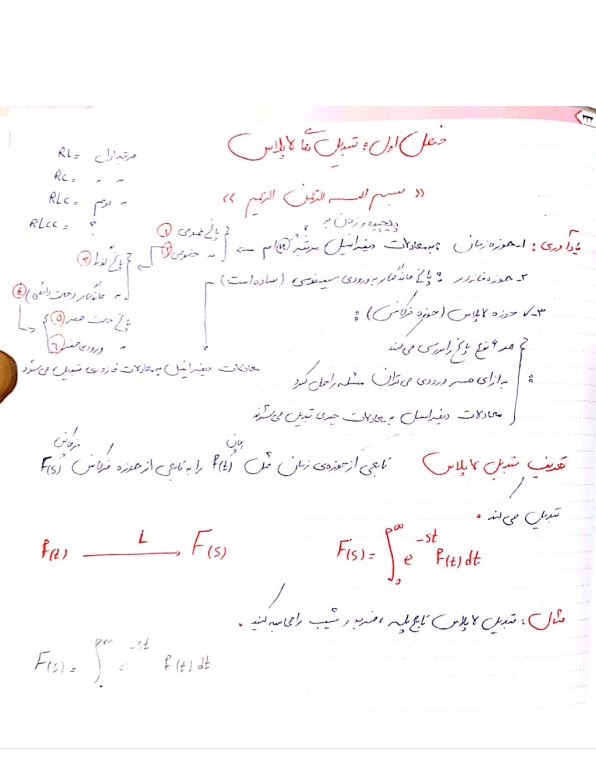 ۲۳۳
فصل اول: تبدیل های لاپلاس
« بسم الله الرحمن الرحیم »
مرتبه اول RL =
" " RC =
" دوم RLC =
؟ RLCC =
پیچیده و زمان بر
یادآوری: ۱- حوزه زمان: به معادلات دیفرانسیل مرتبه
۱ پاسخ عمومی
۲ " خصوصی
۳ پاسخ گذرا
۴ " ماندگار (حالت دائمی)
۵ پاسخ حالت صفر
۶ " ورودی صفر
۲- حوزه فازور: پاسخ ماندگار به ورودی سینوسی (ساده است)
معادلات دیفرانسیل به معادلات فازوری تبدیل می شود
۳- حوزه لاپلاس (حوزه فرکانس):
هر ۶ نوع پاسخ را بررسی می کند
به ازای هر ورودی می توان مسئله را حل کرد
معادلات دیفرانسیل به معادلات جبری تبدیل می شوند
زمان فرکانس
تعریف تبدیل لاپلاس تابعی از حوزه ی زمان مثل f(t) را به تابعی از حوزه فرکانس F(s)
تبدیل می کند.
f(t) L F(s) F(s) = ∫₀^∞ e^-st f(t) dt
مثال: تبدیل لاپلاس تابع پله، ضربه و شیب را محاسبه کنید.
F(s) = ∫^∞ e^-st f(t) dt